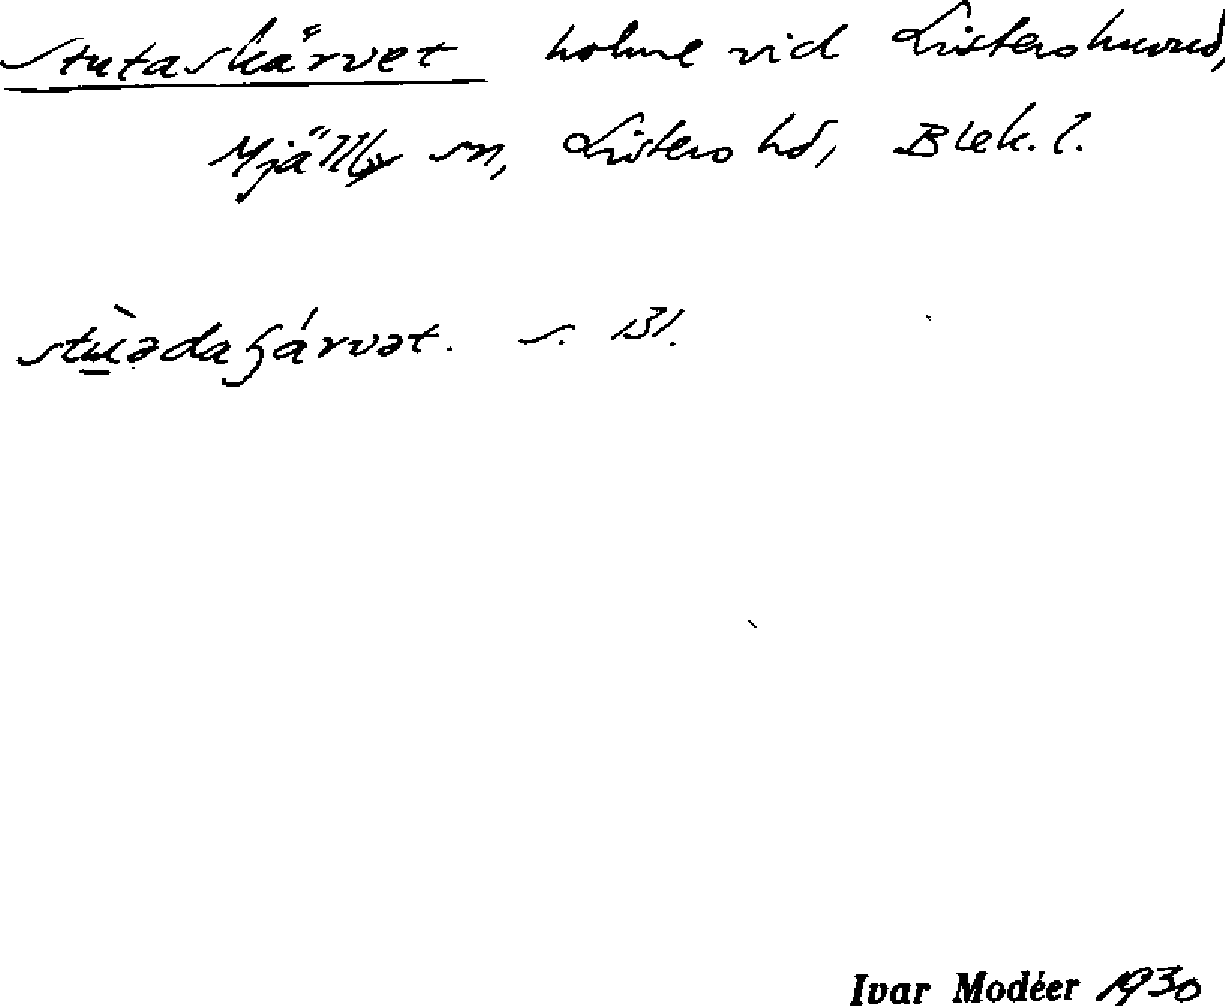 Stutaskärvet holme vid Listershuvud,
Mjällby sn, Listers hd, Blek. l.
s. Bl.
Ivar Modéer 1930